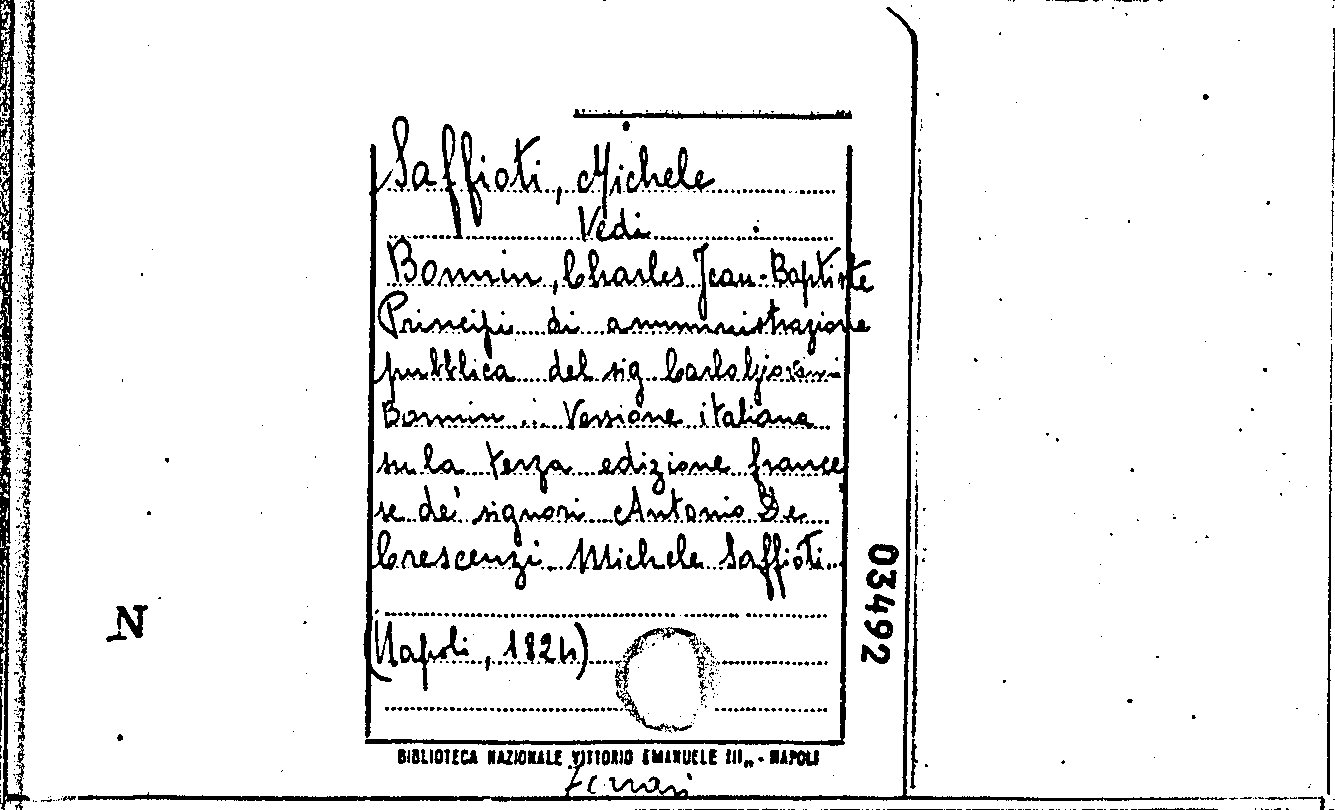 Saffioti, Michele
Vedi
Bonnin, Charles Jean-Baptiste
Principi di amministrazione
pubblica del sig Carlo Giovanni
Bonnin ... Versione italiana
su la terza edizione france
se de' signori Antonio De
Crescenzi Michele Saffioti.
(Napoli, 1824)
BIBLIOTECA NAZIONALE VITTORIO EMANUELE III„ - NAPOLI
03492
N